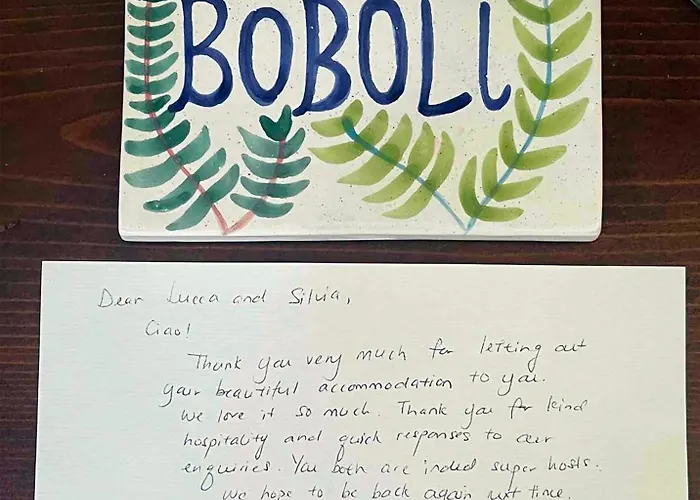 BOBOLI
Dear Lucca and Silvia,
Ciao!
Thank you very much for letting out
your beautiful accommodation to you.
We love it so much. Thank you for kind
hospitality and quick responses to our
enquiries. You both are indeed super hosts.
We hope to be back again next time